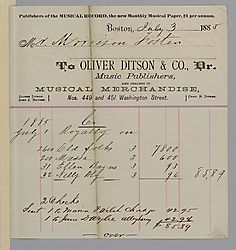 Publishers of the MUSICAL RECORD, the new Monthly Musical Paper, $1 per annum.
Boston, July 3 1885
Morrison Foster
To OLIVER DITSON & CO., Dr.
Music Publishers,
AND DEALERS IN
MUSICAL MERCHANDISE,
Nos. 449 and 451 Washington Street.
OLIVER DITSON. JOHN C. HAYNES. CHAS. H. DITSON.
1885 Cr
July 1 Royalty on
2600 Old folks 3 7800
200 Massa 3 600
31 Ellen Bayne 3 93
32 Nelly 3 96 85,89
2 Checks
Sent 1 to Welsh Chicago 42.95
1 to Jane Wylie Allegheny 42.94
$85.89
Over